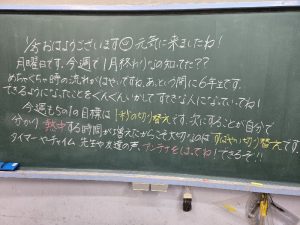 おはようございます 元気に来ましたね!
月曜日です。今週で1月終わりなの知ってた??
めちゃくちゃ時の流れがはやいですね。あっという間に6年生です。
できるようになったことをぐんぐんいかしてすてきな人になっていてね!
今週も5の1の目標は 1秒の切り替え です。次にすることが自分で
分かり 熱中する時間が増えたからこそ大切なのは すばやい切り替え です
タイマーやチャイム、先生や友達の声、アンテナをはってね!できるぞ!!